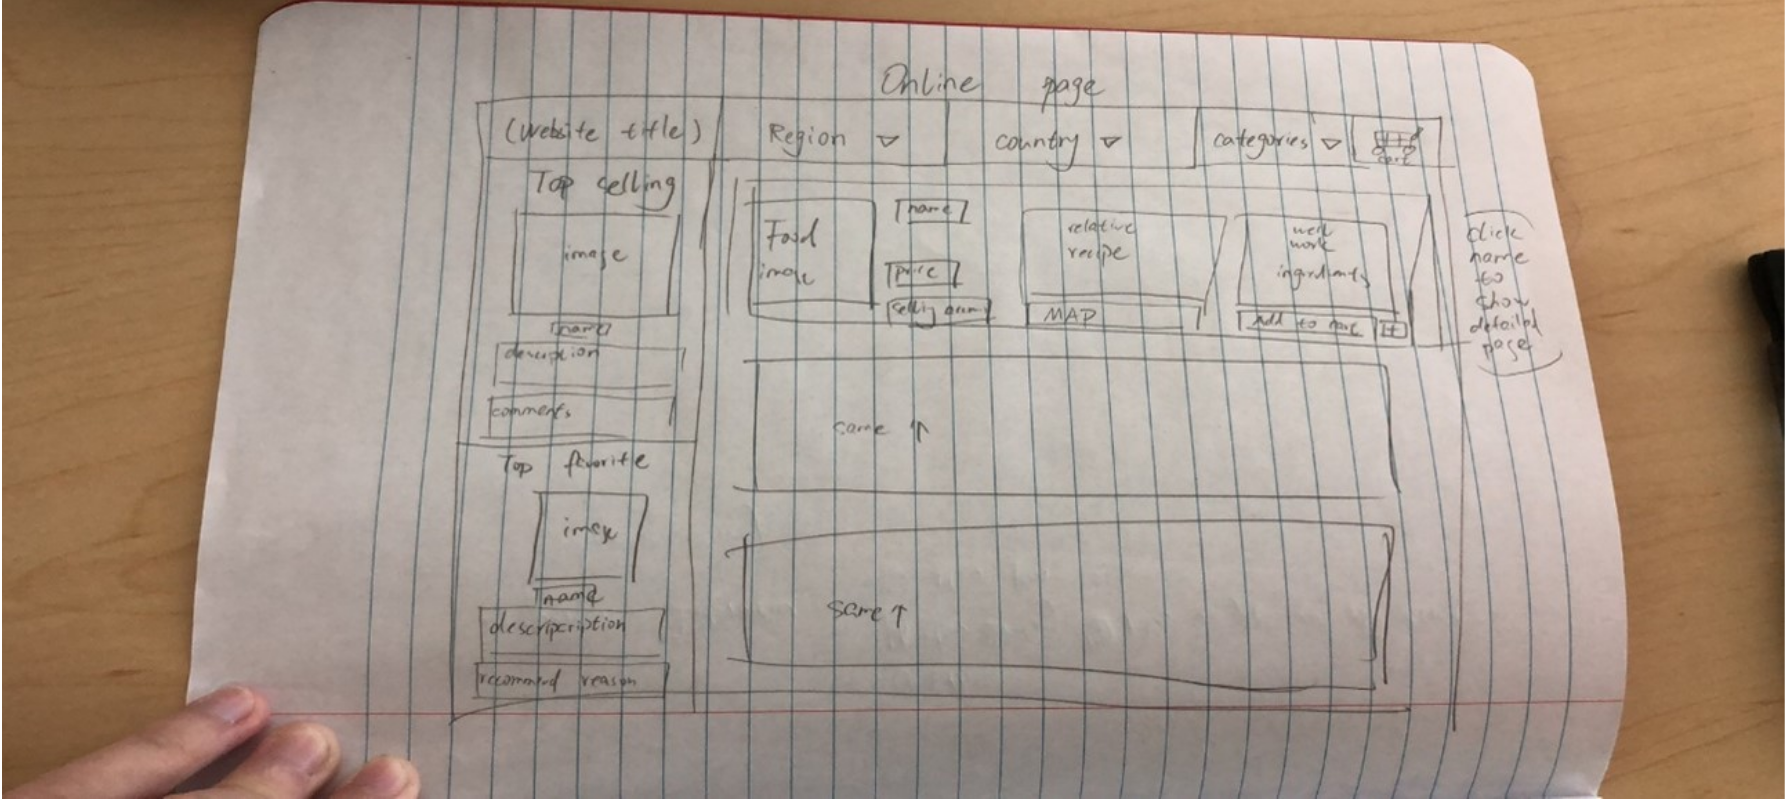 Online page
(Website title)
Region
country
categories
cart
Top selling
image
name
description
comments
Top favorite
image
name
descripcription
recommend reason
Food
image
name
price
selling
relative
recipe
MAP
well
work
ingredients
Add to cart
same ↑
same ↑
click
name
to
show
detailed
page